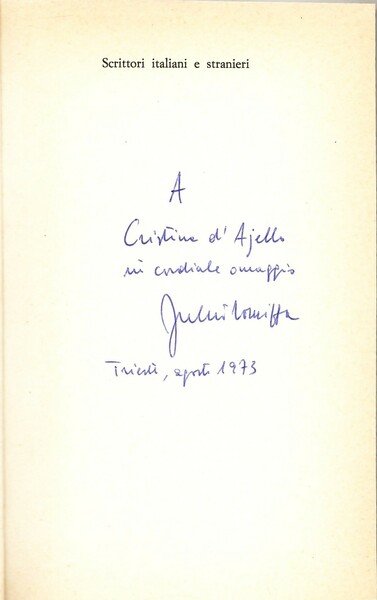 Scrittori italiani e stranieri
A
Cristina d'Ajello
in cordiale omaggio
Fulvio Tomizza
Trieste, agosto 1973